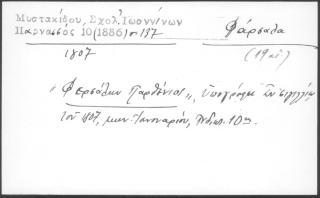 Μυστακίδου, Σχολ. Ἰωαννίνων
Παρνασσός 10 (1886) σ. 137
Φάρσαλα
1807
(19 αἰ.)
"Φερσάλων Παρθένιος", ὑπογράφει ἐν σιγιλλίῳ
τοῦ 1807, μην. Ἰανουαρίου, Ἰνδικτ. 10ης.